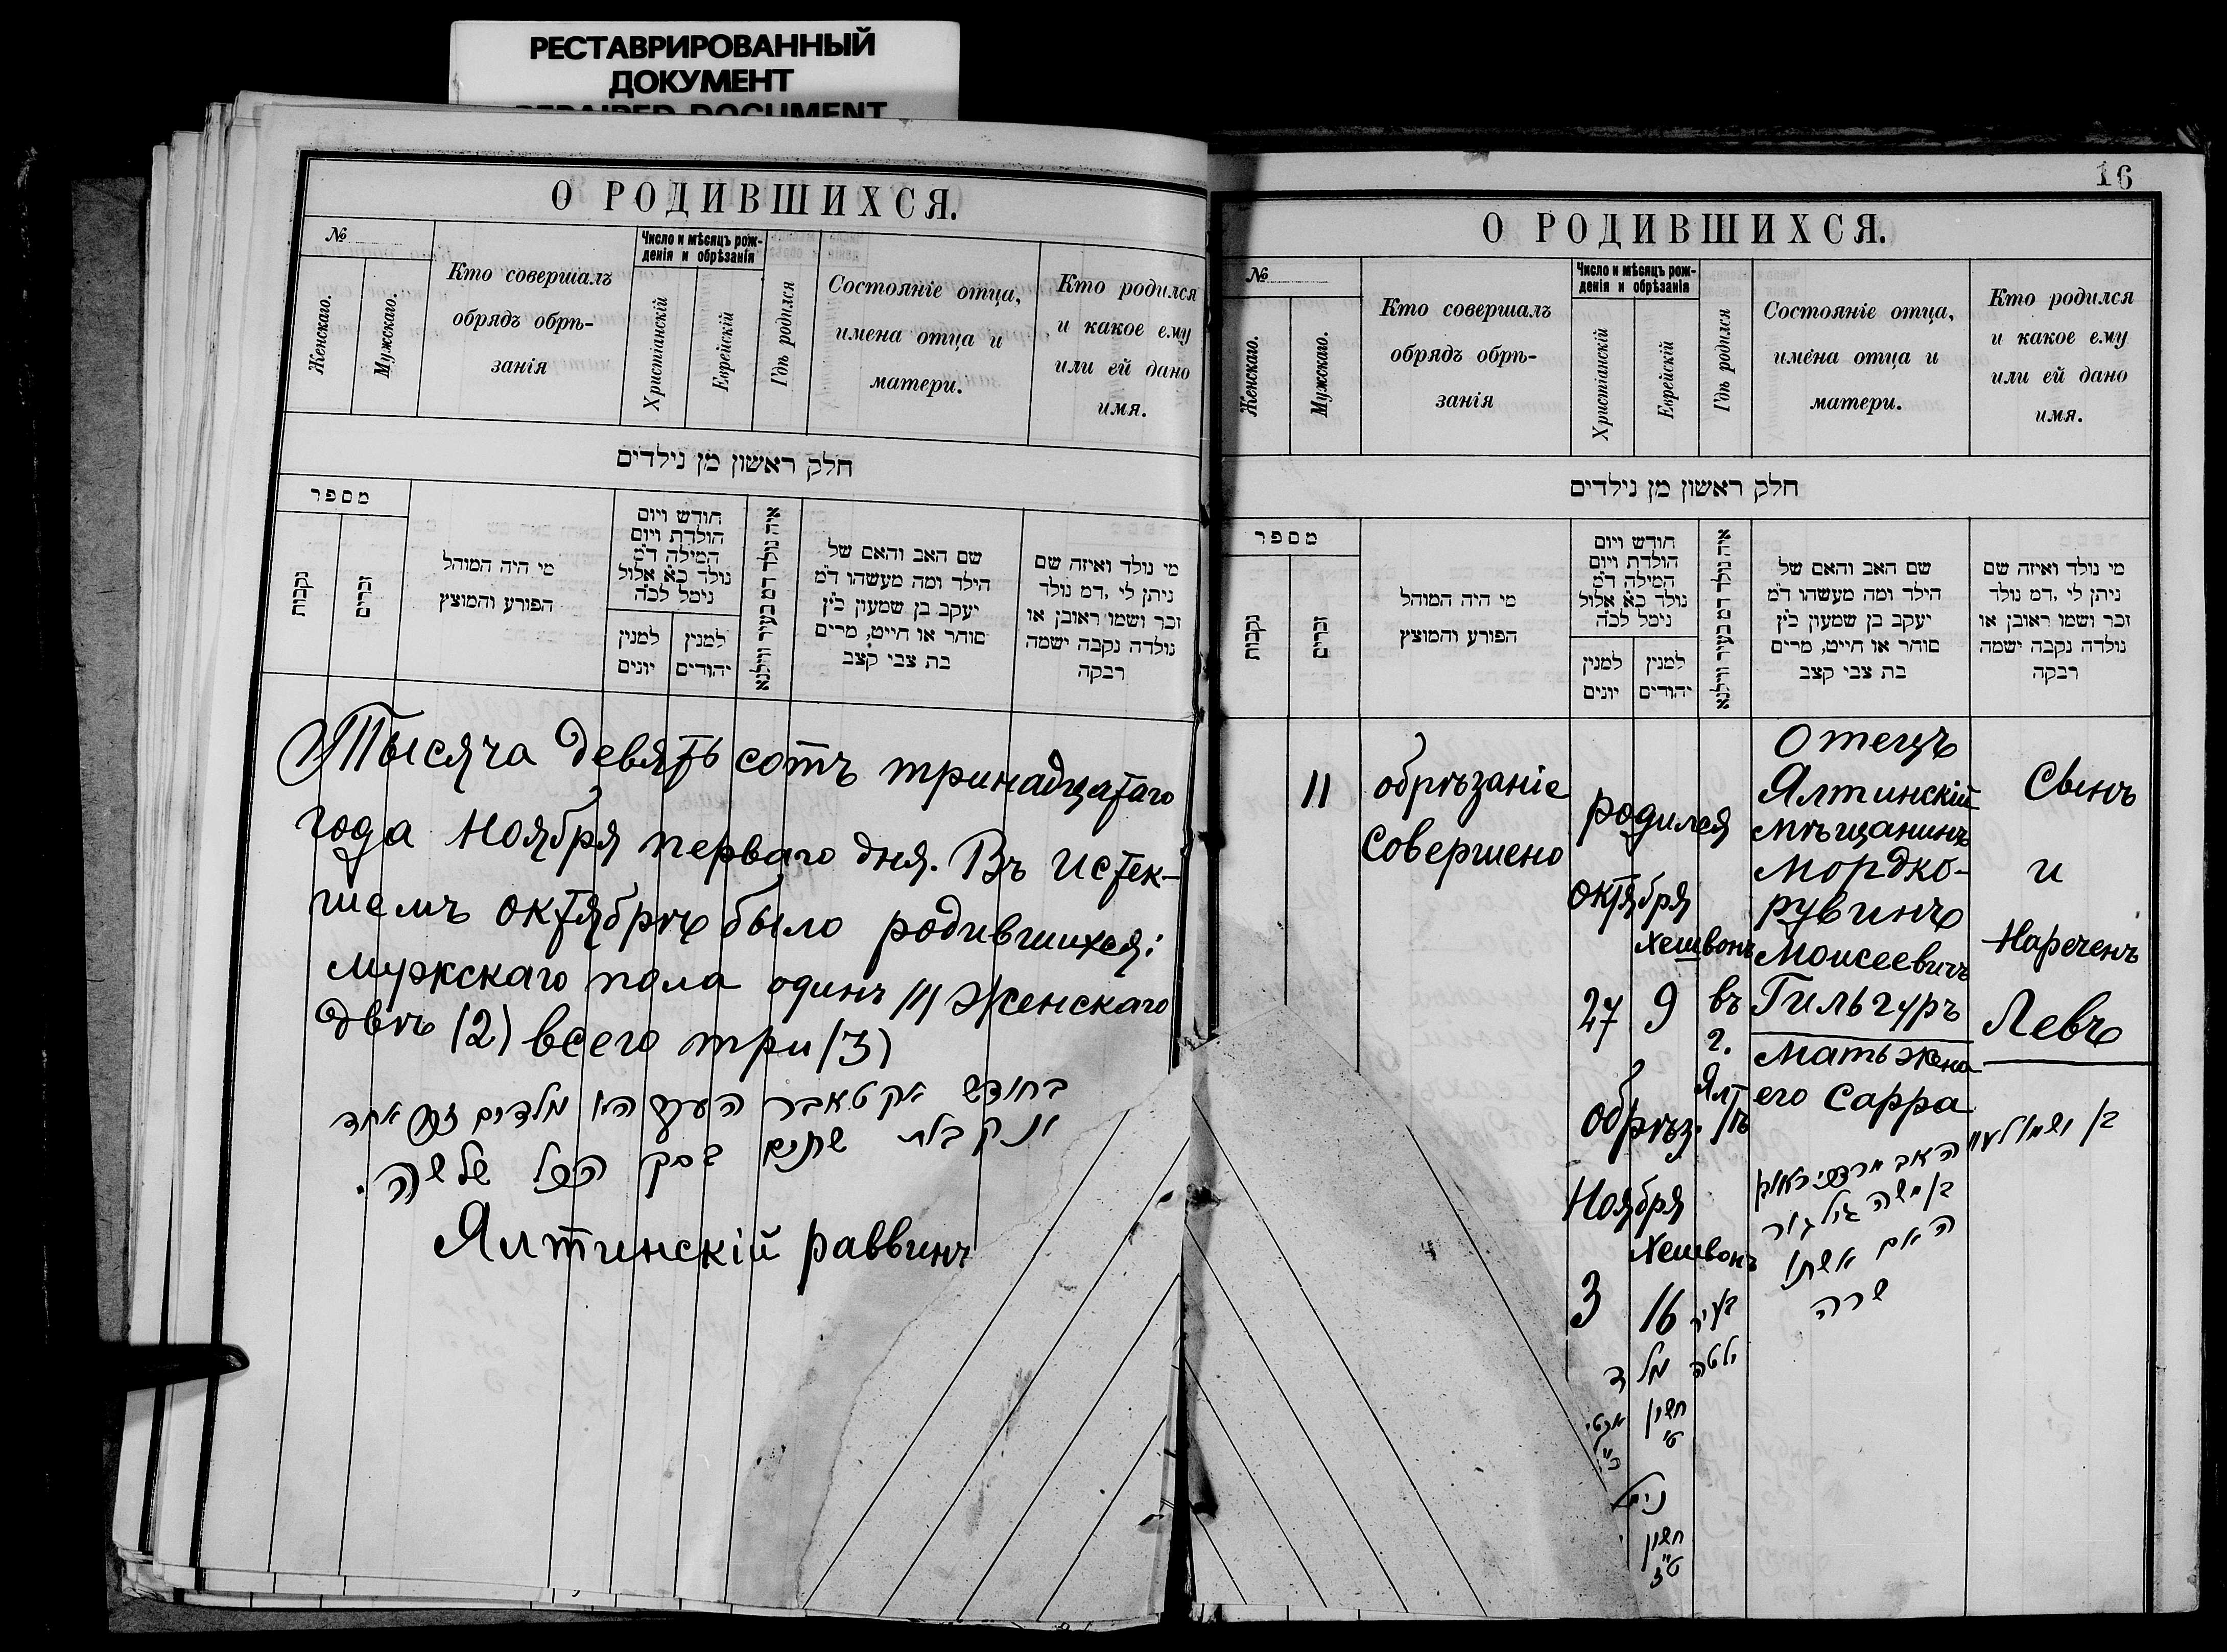 РЕСТАВРИРОВАННЫЙ
ДОКУМЕНТ
REPAIRED DOCUMENT
О РОДИВШИХСЯ.
№
Женскаго.
Мужскаго.
Кто совершалъ
обрядъ обрѣ-
занія
Число и мѣсяцъ рож-
денія и обрѣзанія
Христіанскій
Еврейскій
Гдѣ родился
Состояніе отца,
имена отца и
матери.
Кто родился
и какое ему
или ей дано
имя.
חלק ראשון מן נילדים
מספר
נקבות
זכרים
מי היה המוהל
הפורע והמוצץ
חודש ויום
הולדת ויום
המילה ד"מ
נולד כ"א אלול
נימל לכ"ה
למנין
יונים
למנין
יהודים
איה נולד דמ בעיר ווילנא
שם האב והאם של
הילד ומה מעשהו ד"מ
יעקב בן שמעון כ"ץ
סוחר או חייט, מרים
בת צבי קצב
מי נולד ואיזה שם
ניתן לי ,דמ נולד
זכר ושמו ראובן או
נולדה נקבה ישמה
רבקה
Тысяча девятьсотъ тринадцатаго
года Ноября перваго дня. Въ истек-
шемъ октябрѣ было родившихся:
мужскаго пола одинъ /1/ Женскаго
двѣ (2) всего три (3)
בחודש אקטאבר העבר היו נולדים זכר אחד
ונקבות שתים הכל שלשה.
Ялтинскій раввинъ
16
О РОДИВШИХСЯ.
№
Женскаго.
Мужскаго.
Кто совершалъ
обрядъ обрѣ-
занія
Число и мѣсяцъ рож-
денія и обрѣзанія
Христіанскій
Еврейскій
Гдѣ родился
Состояніе отца,
имена отца и
матери.
Кто родился
и какое ему
или ей дано
имя.
חלק ראשון מן נילדים
מספר
נקבות
זכרים
מי היה המוהל
הפורע והמוצץ
חודש ויום
הולדת ויום
המילה ד"מ
נולד כ"א אלול
נימל לכ"ה
למנין
יונים
למנין
יהודים
איה נולד דמ בעיר ווילנא
שם האב והאם של
הילד ומה מעשהו ד"מ
יעקב בן שמעון כ"ץ
סוחר או חייט, מרים
בת צבי קצב
מי נולד ואיזה שם
ניתן לי ,דמ נולד
זכר ושמו ראובן או
נולדה נקבה ישמה
רבקה
11
обрѣзаніе
совершено
родился
октября
хешвонъ
27 9
въ
г.
Ялт
ѣ
обрѣз.
Ноября
Хешвонъ
3 16
בעיר
ילטה
נולד
חשון
ט'
נימל
חשון
ט"ז
Отецъ
Ялтинскій
мѣщанинъ
Мордко-
рувинъ
Моисеевичъ
Гильгуръ
Мать жена
его Сарра
האב מרדכי ראובן
בן משה גילגור
האם אשתו
שרה
Сынъ
и
Нареченъ
Левъ
בן ושמו